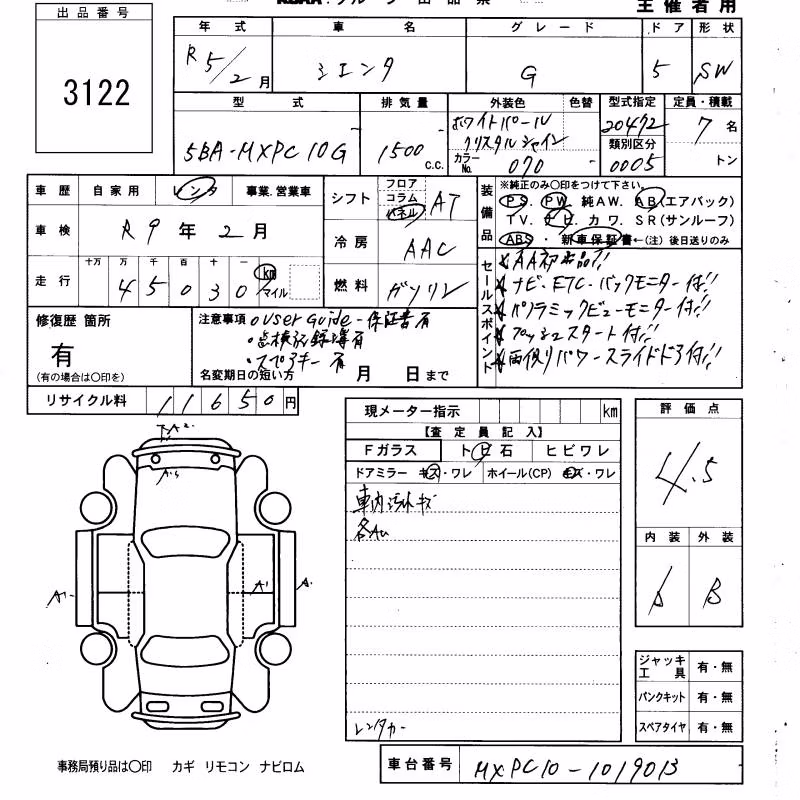 主催者用
出品番号
3122
年式 車名 グレード ドア 形状
R5/2月 シエンタ G 5 SW
型式 排気量 外装色 色替 型式指定 定員・積載
5BA-MXPC10G 1500c.c. ホワイトパール クリスタルシャイン 20472 7名
カラーNo. 070 類別区分 0005 トン
車歴 自家用 レンタ 事業.営業車
車検 R9年2月
走行 十万 万 千 百 十 一
45030 km マイル
シフト フロア コラム パネル AT
冷房 AAC
燃料 ガソリン
装備品 ※純正のみ○印をつけて下さい。
PS. PW. 純AW. AB(エアバック)
TV. ナビ. カワ. SR(サンルーフ)
ABS・新車保証書←(注)後日送りのみ
セールスポイント
AA初出品!!
ナビ・ETC・バックモニター付!!
パノラミックビューモニター付!!
プッシュスタート付!!
両側パワースライドドア付!!
修復歴 箇所
有
(有の場合は○印を)
注意事項 ・User Guide・保証書有
・点検記録簿有
・スペアキー有
名変期日の短い方 月 日まで
リサイクル料 11650円
現メーター指示 km
【査定員記入】
Fガラス ト ビ 石 ヒビワレ
ドアミラー キズ・ワレ ホイール(CP) キズ・ワレ
車内汚れキズ
各AU
レンタカー
評価点
4.5
内装 外装
A B
A2
A1
A1
A1
ジャッキ工具 有・無
パンクキット 有・無
スペアタイヤ 有・無
事務局預り品は○印 カギ リモコン ナビロム
車台番号 MXPC10-1019013